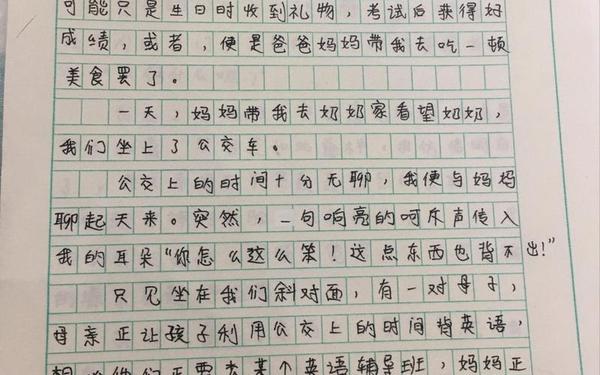 可能只是生日时收到礼物，考试后获得好
成绩，或者，便是爸爸妈妈带我去吃一顿
美食罢了。
一天，妈妈带我去奶奶家看望奶奶，
我们坐上了公交车。
公交上的时间十分无聊，我便与妈妈
聊起天来。突然，一句响亮的呵斥声传入
我的耳朵“你怎么这么笨！这点东西也背不出！”
只见坐在我们斜对面，有一对母子，
母亲正让孩子利用公交上的时间背英语，
们正要去某个英语辅导班，妈妈正